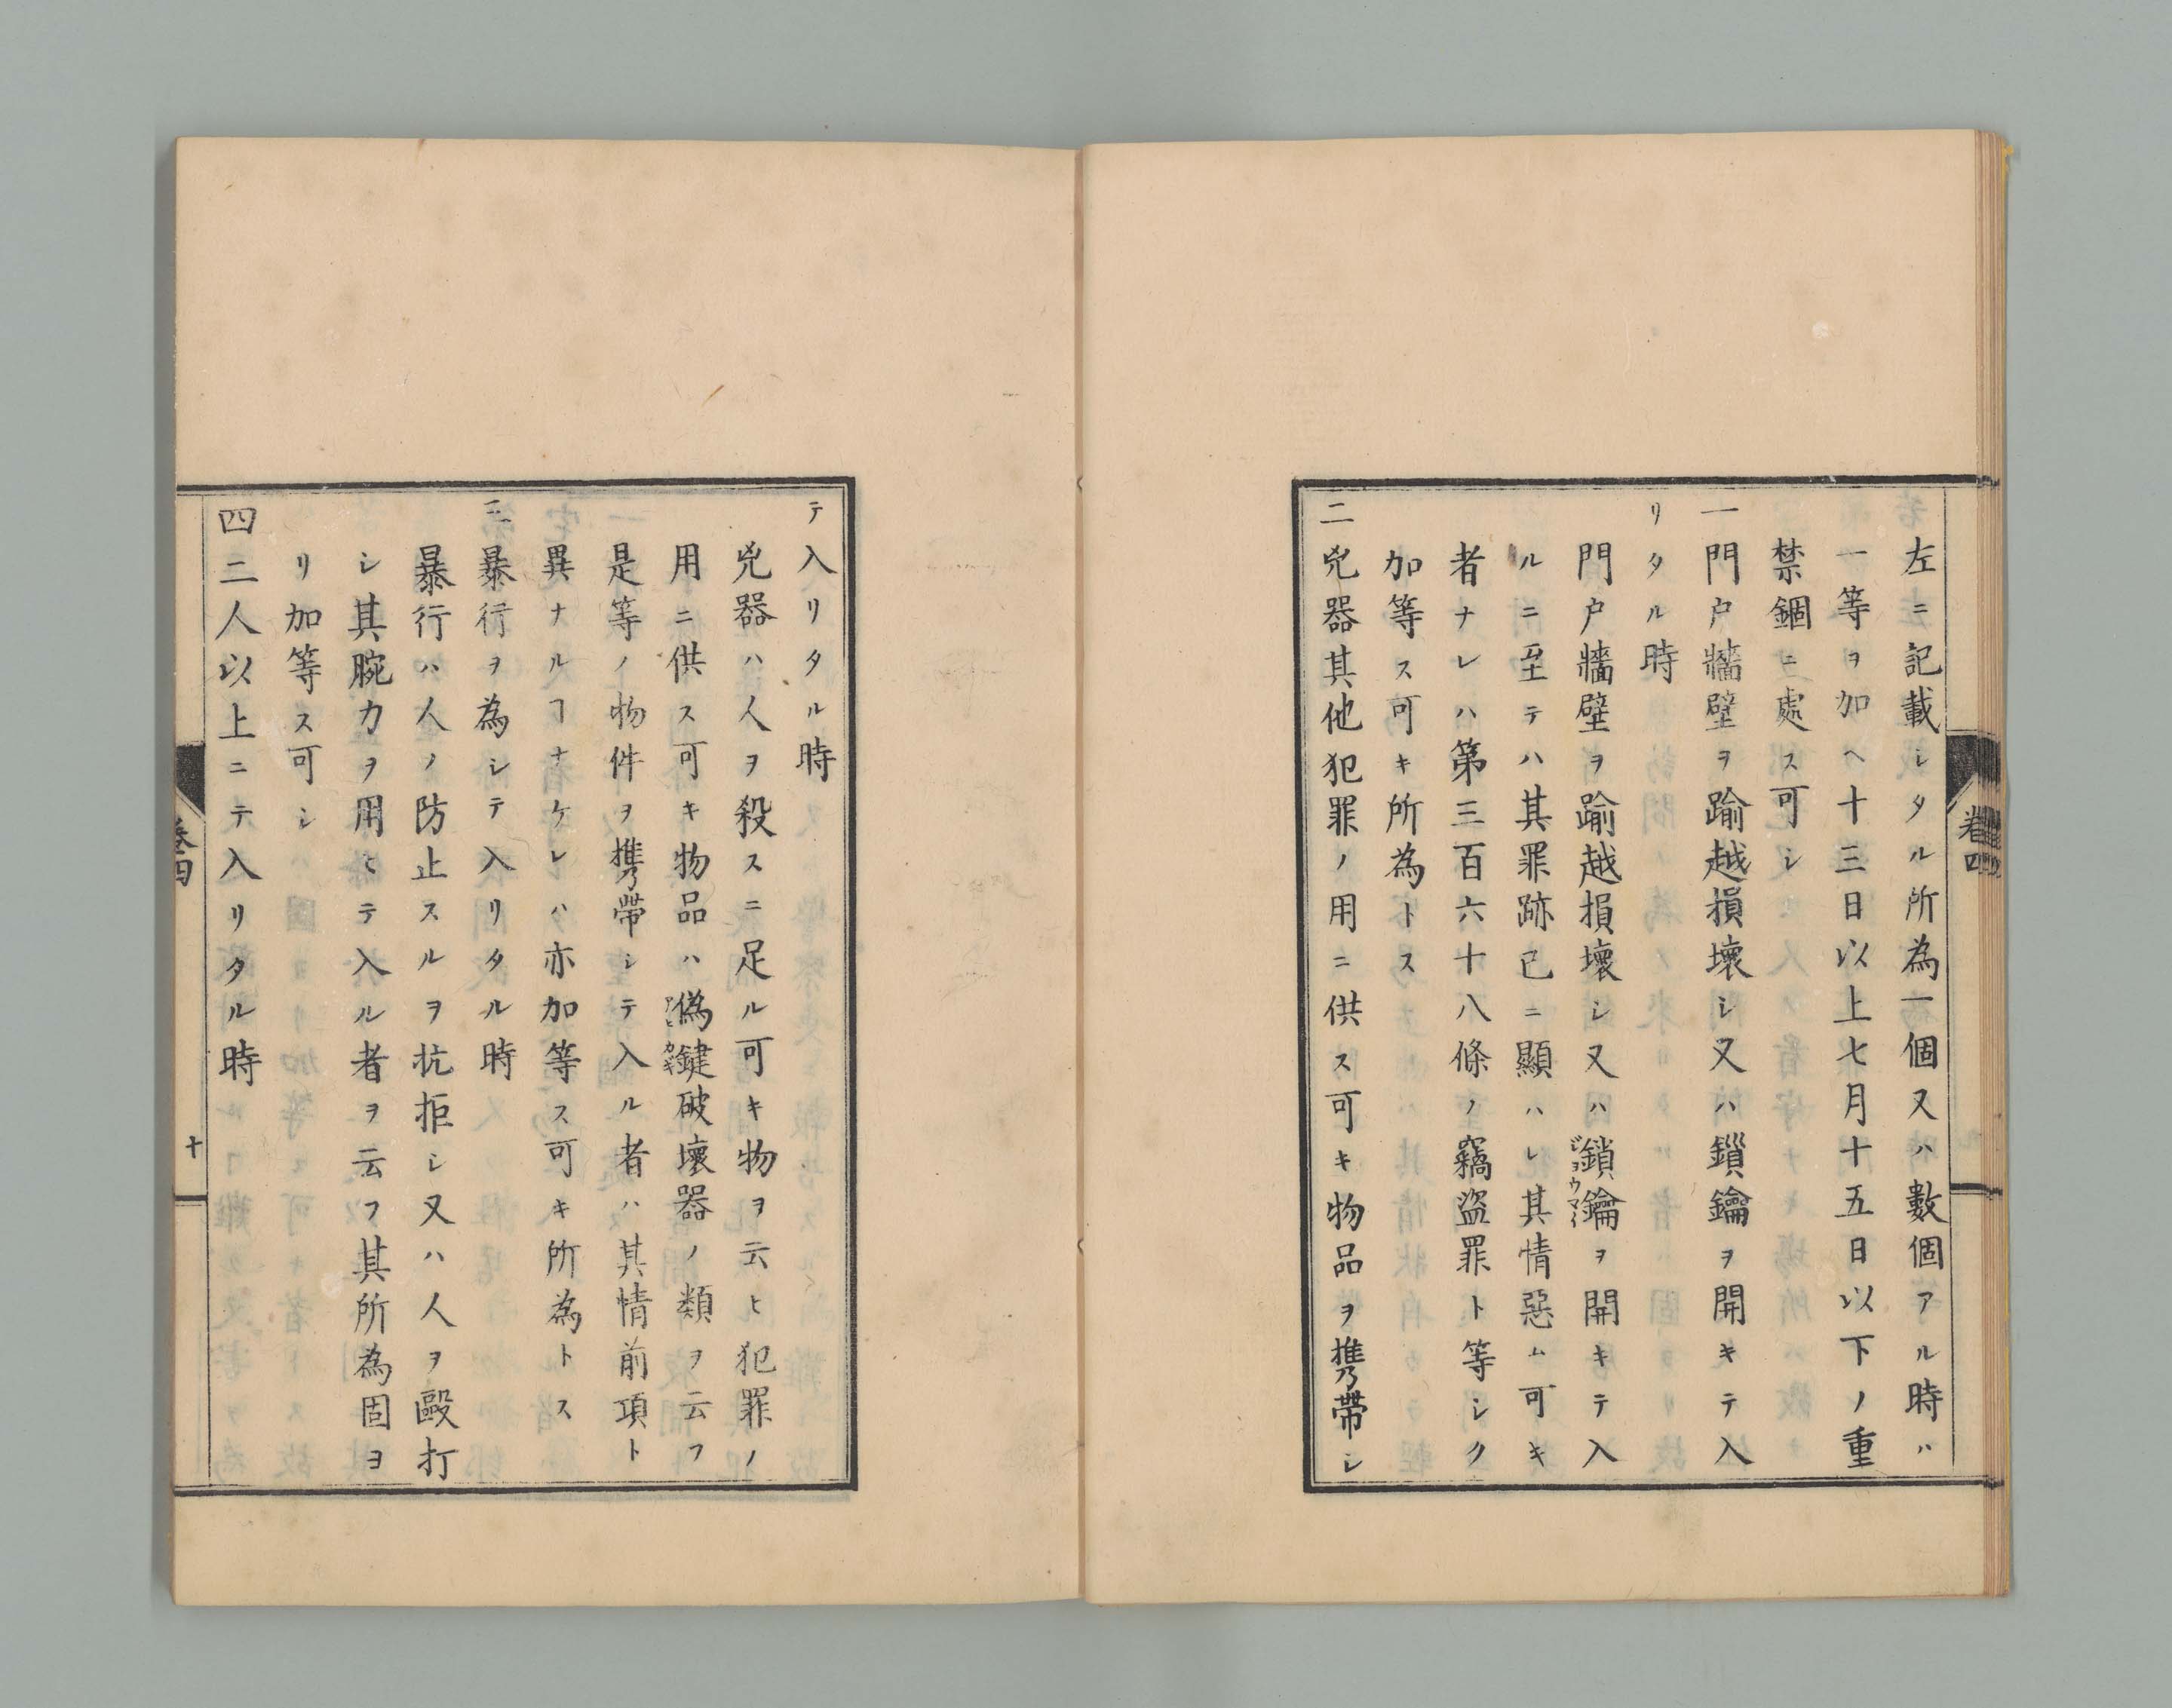 左ニ記載シタル所為一個又ハ數個アル時ハ
一等ヲ加ヘ十三日以上七月十五日以下ノ重
禁錮ニ處ス可シ
一門戸牆壁ヲ踰越損壞シ又ハ鎖鑰ヲ開キテ入
リタル時
門戸牆壁ヲ踰越損壞シ又ハ鎖鑰ヲ開キテ入
ジョウマー
ルニ至テハ其罪跡已ニ顯ハレ其情惡ム可キ
者ナレハ第三百六十八條ノ竊盜罪ト等シク
加等ス可キ所為トス
二兇器其他犯罪ノ用ニ供ス可キ物品ヲ携帶シ
卷四
テ入リタル時
兇器ハ人ヲ殺スニ足ル可キ物ヲ云ヒ犯罪ノ
用ニ供ス可キ物品ハ僞鍵破壞器ノ類ヲ云フ
是等ノ物件ヲ携帶シテ入ル者ハ其情前項ト
異ナルヿナケレハ亦加等ス可キ所為トス
三暴行ヲ為シテ入リタル時
暴行ハ人ノ防止スルヲ抗拒シ又ハ人ヲ毆打
シ其腕力ヲ用ヒテ入ル者ヲ云フ其所為固ヨ
リ加等ス可シ
四二人以上ニテ入リタル時
卷四
十